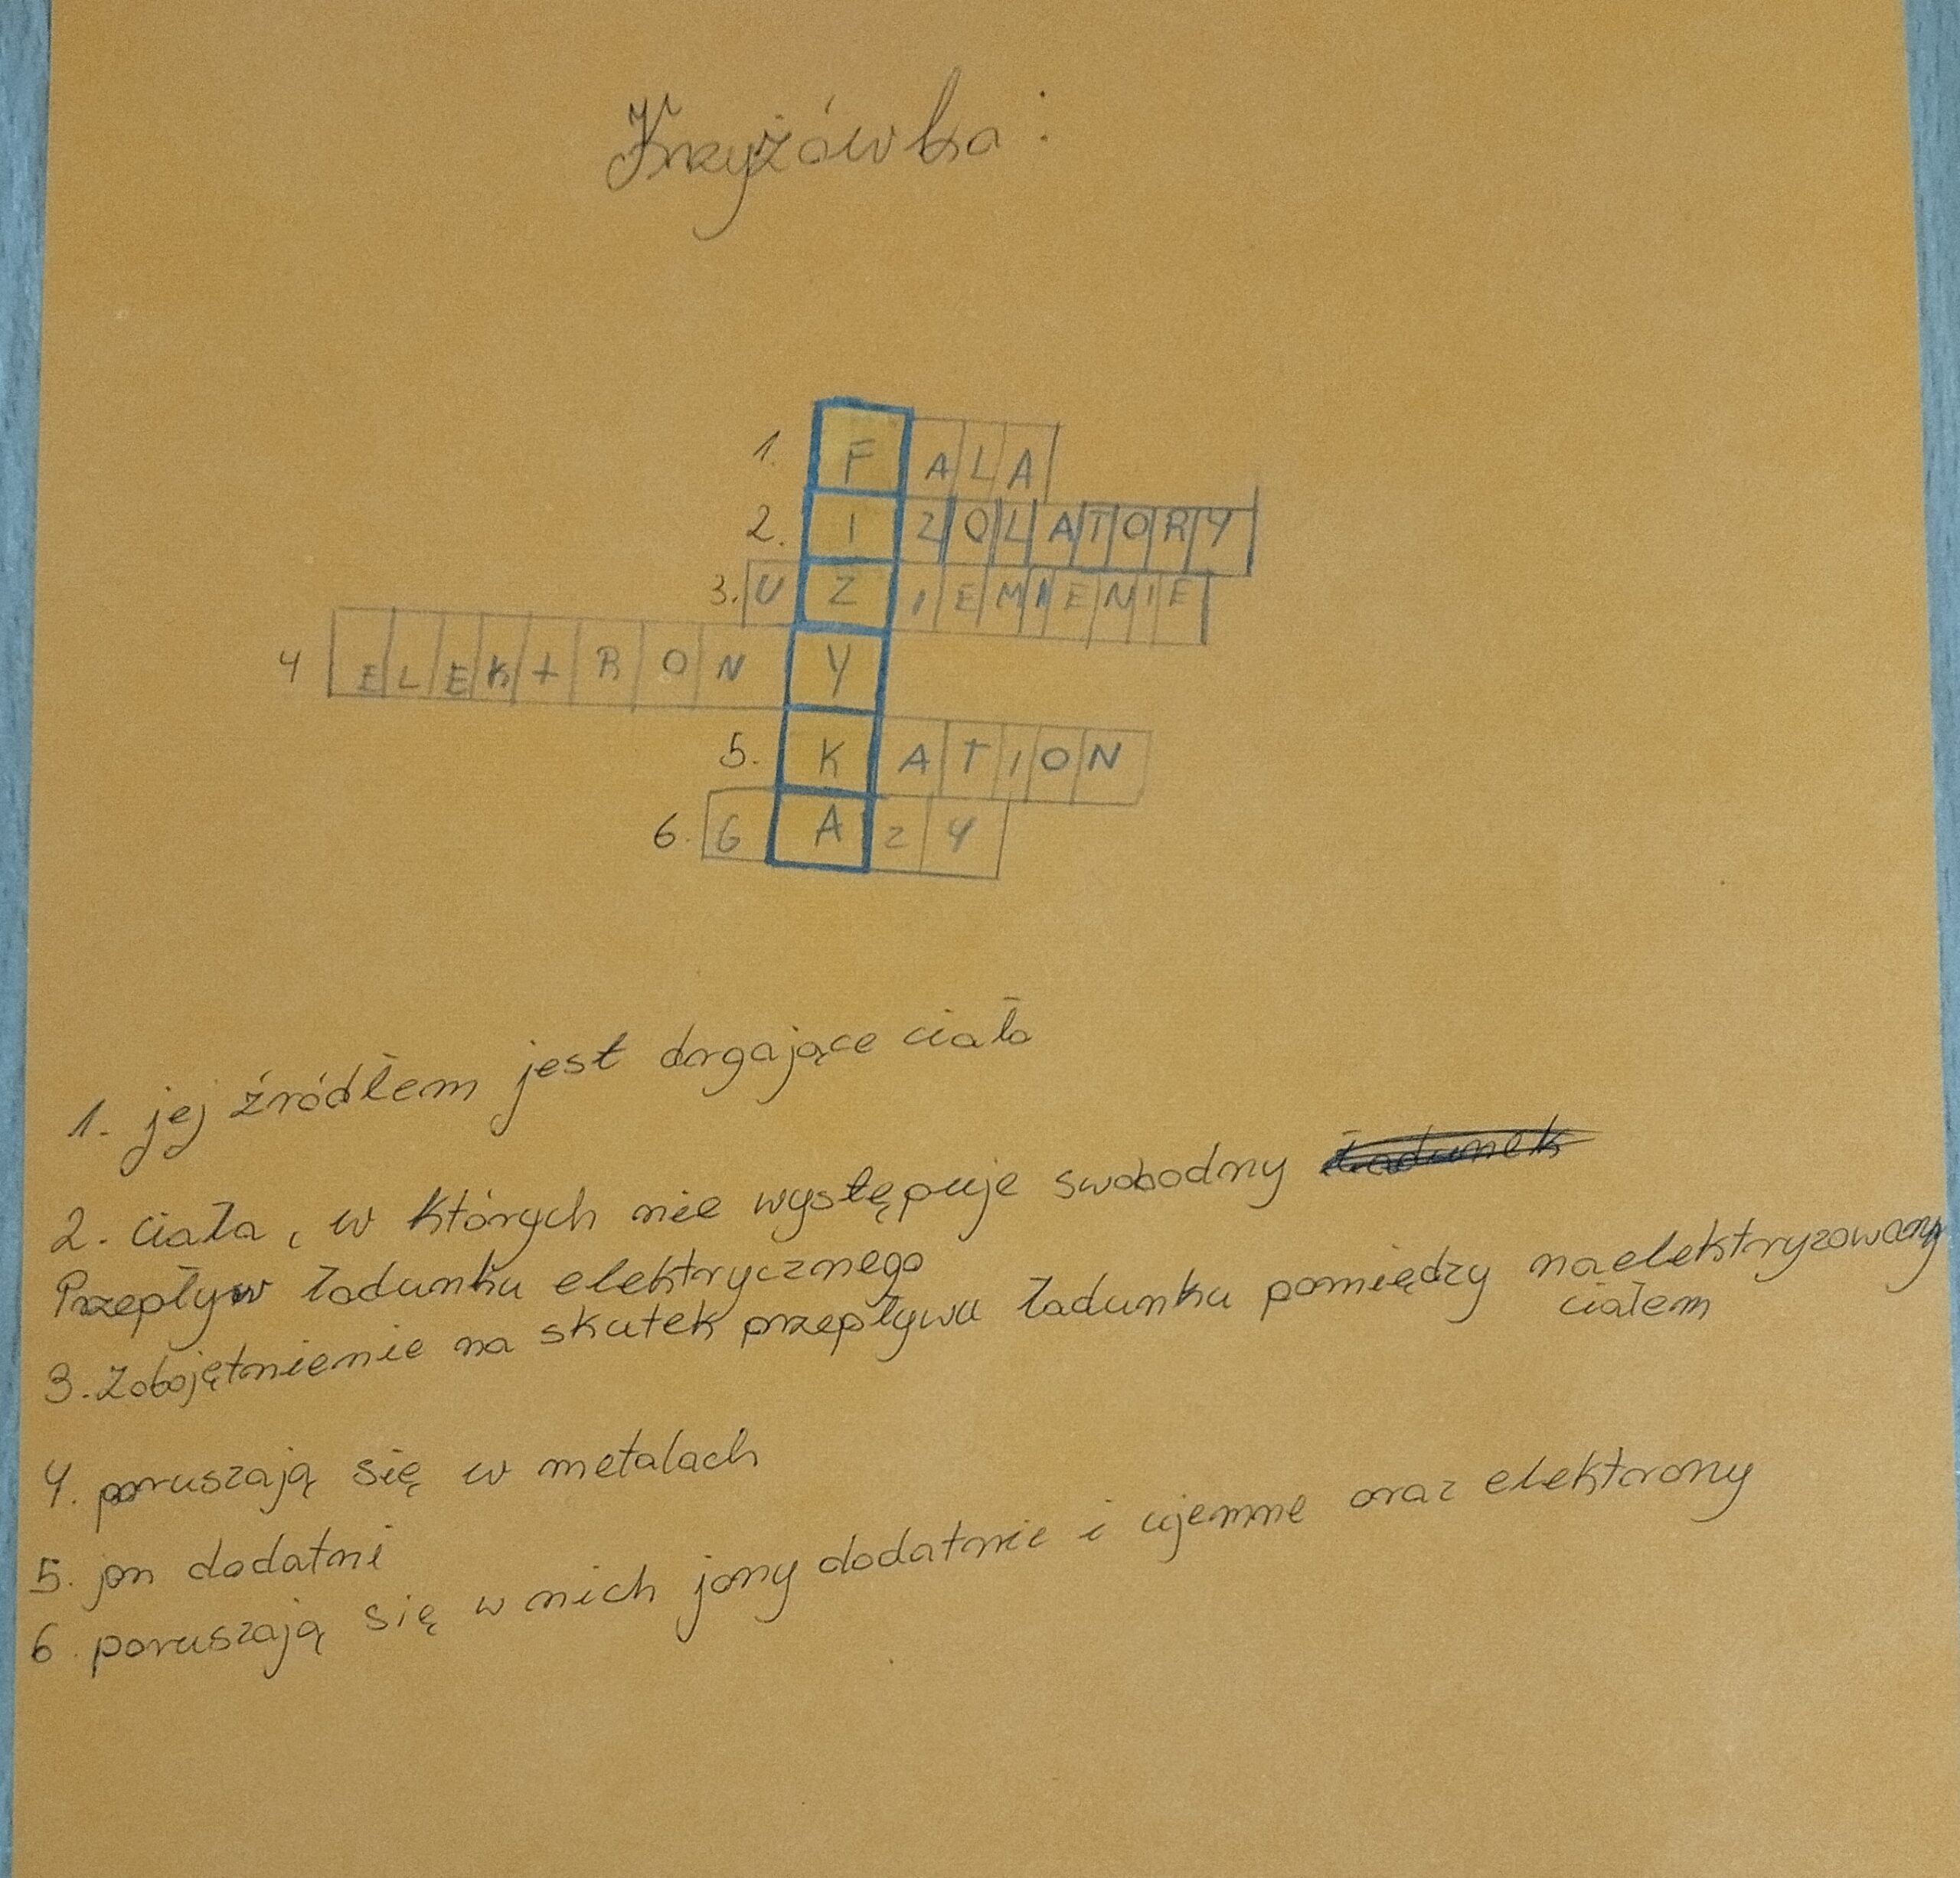 Krzyżówka:
1. FALA
2. IZOLATORY
3. UZIEMIENIE
4 ELEKtRONY
5. KATION
6. GAZY
1. jej źródłem jest drgające ciało
2. ciała, w których nie występuje swobodny
Przepływ ładunku elektrycznego
3. Zobojętnienie na skutek przepływu ładunku pomiędzy naelektryzowany
ciałem
4. poruszają się w metalach
5. jon dodatni
6. poruszają się w nich jony dodatnie i ujemne oraz elektrony